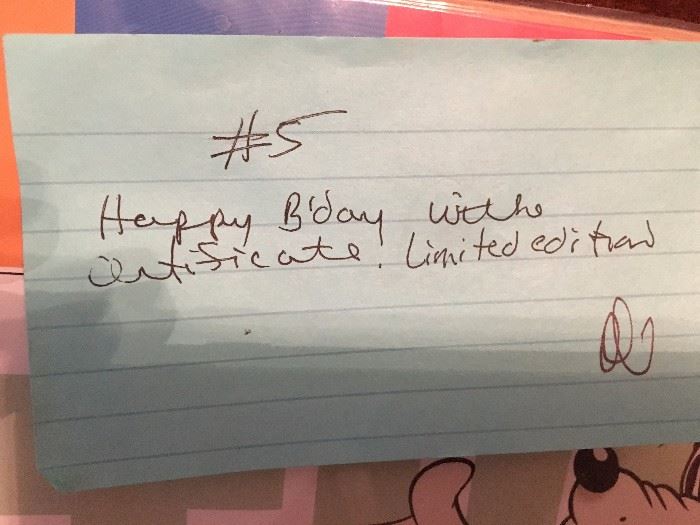 #5
Happy B'day with
certificate. Limited edition